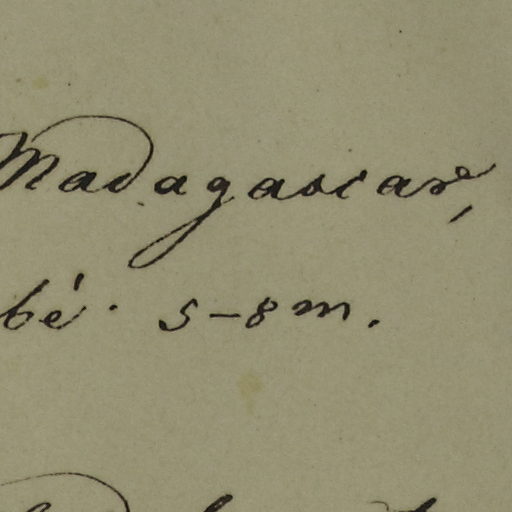 Madagascar,
bé. 5-8 m.